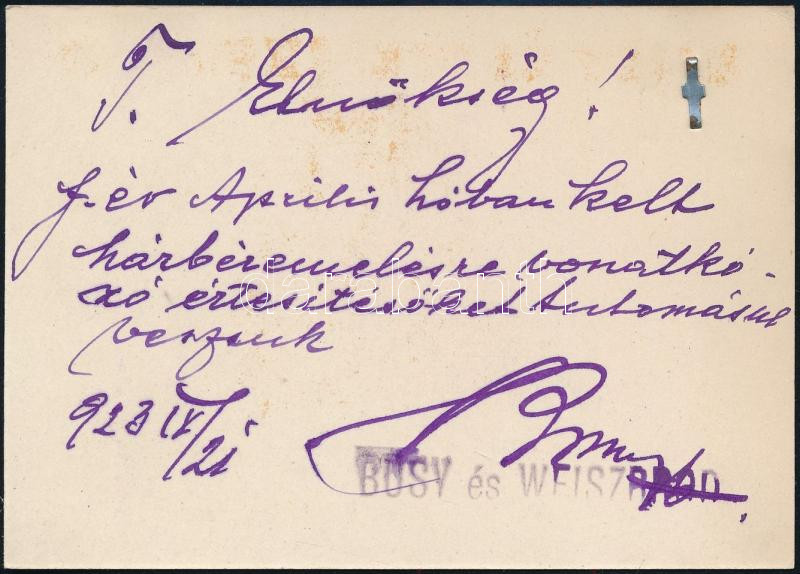 T. Elnökség!
f. év Április hóban kelt
házbéremelésre vonatkó-
zó értesitésöket tudomásul
veszünk
923 IV/21
BUSY és WEISZROD
darabanth